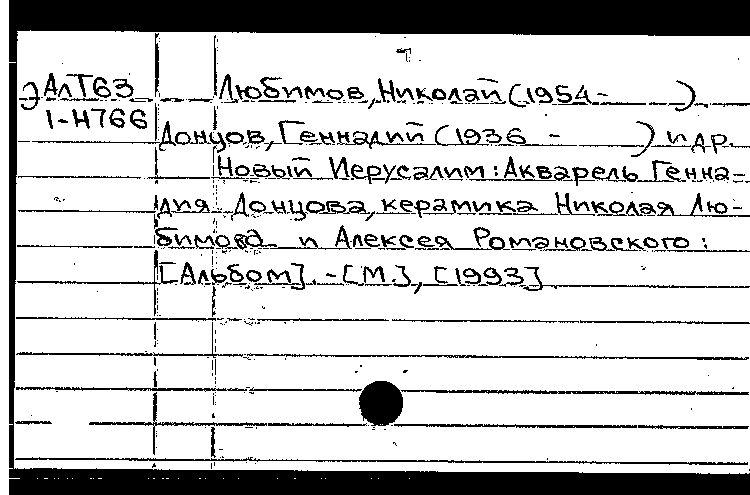 ЭАлТ63 Любимов, Николай (1954- ).
1-Н766 Донцов, Геннадий (1936 - ) и др.
Новый Иерусалим: Акварель Генна-
дия Донцова, керамика Николая Лю-
бимова и Алексея Романовского:
[Альбом]. - [М.], [1993]